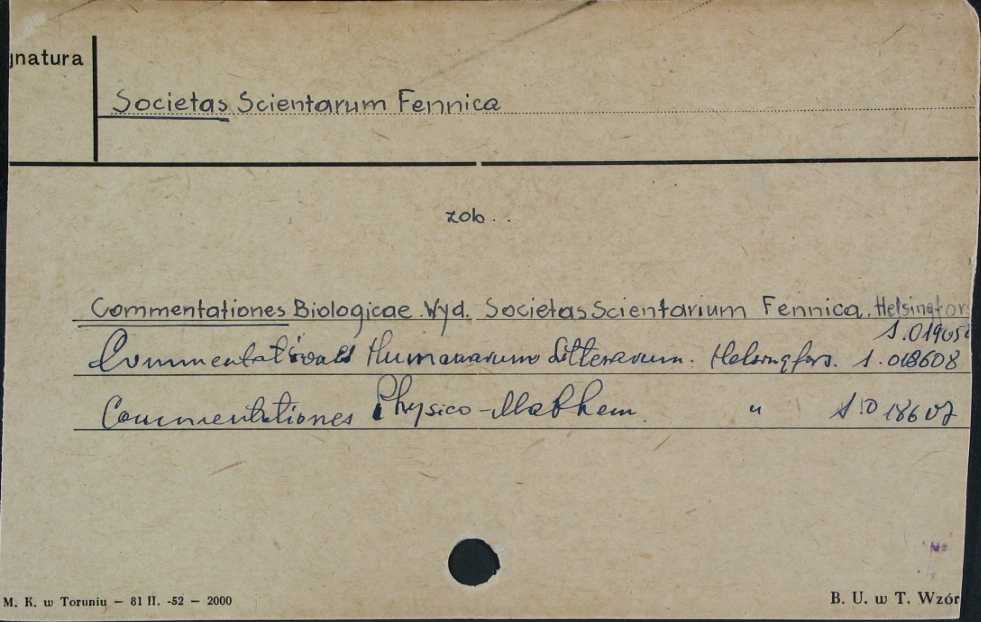 gnatura
Societas Scientarum Fennica
zob..
Commentationes Biologicae. Wyd. Societas Scientarium Fennica. Helsingfors
S.01905
Commentationes Humanarum Litterarum. Helsingfors. S.018608
Commentationes Physico-Mathem. " S.018607
M. K. w Toruniu — 81 II. -52 — 2000
B. U. w T. Wzór